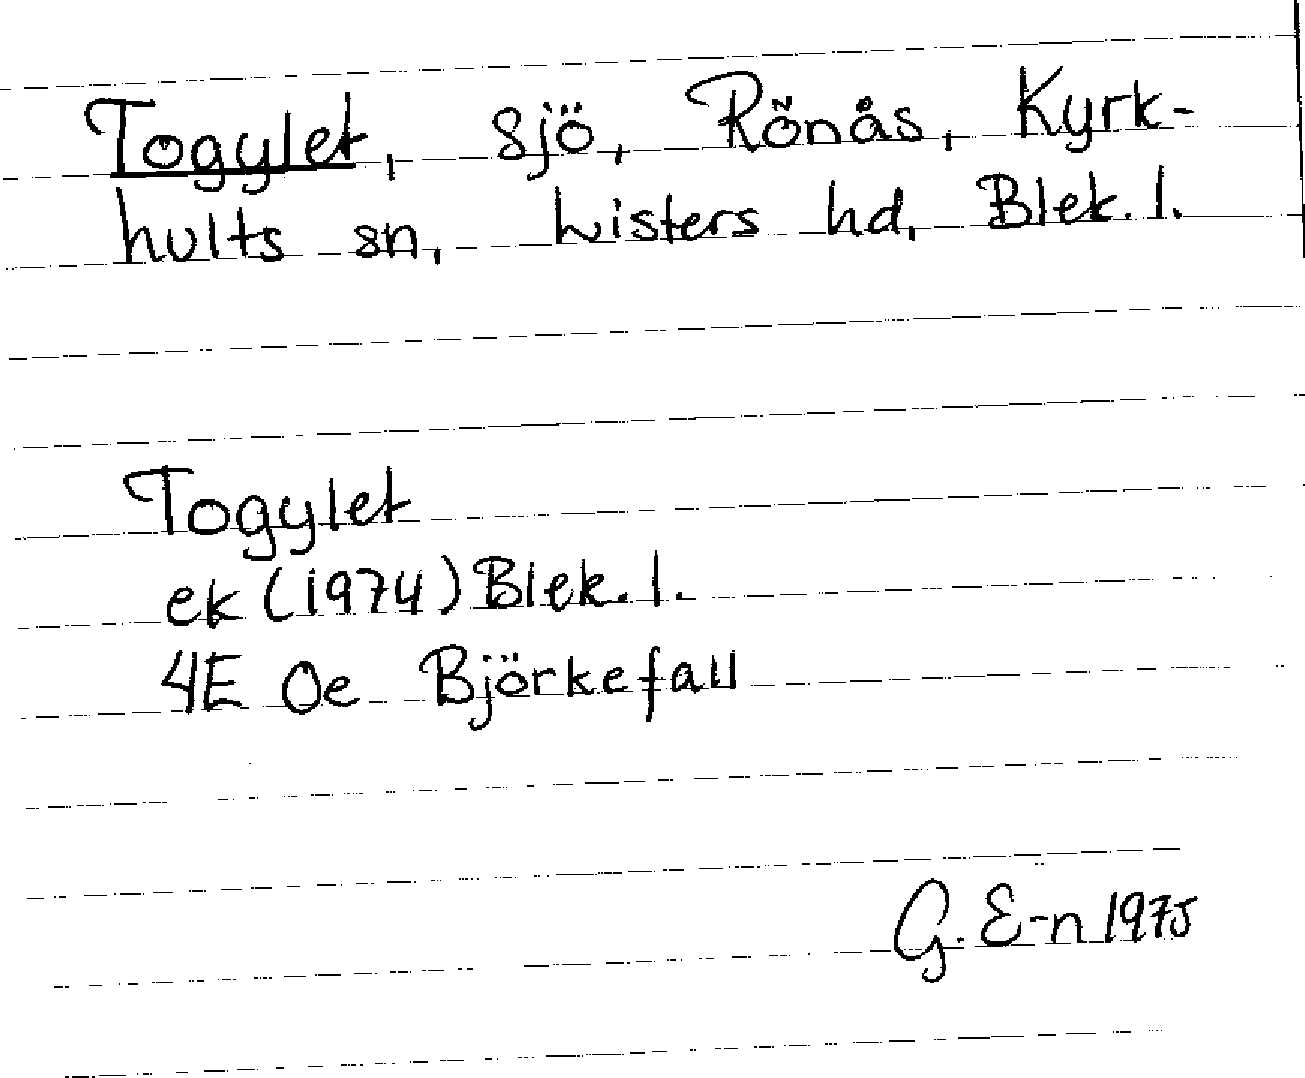 Togylet, sjö, Rönås, Kyrk-
hults sn, Listers hd, Blek. l.
Togylet
ek (1974) Blek. l.
4E Oe Björkefall
G. E-n 1975